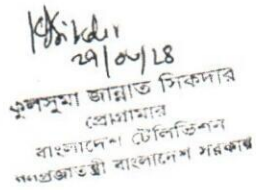 29/05/28
কুলসুমা জান্নাত সিকদার
প্রোগ্রামার
বাংলাদেশ টেলিভিশন
গণপ্রজাতন্ত্রী বাংলাদেশ সরকার